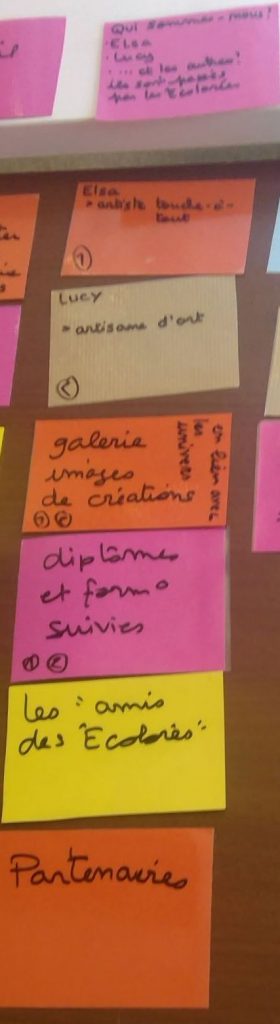 Qui sommes-nous?
· Elsa
· Lucy
· ... et les autres?
ils sont passés
par les Ecolorés
Elsa
* artiste touche-à-
tout
1
Lucy
* artisane d'art
2
galerie
images
de créations
1 2
en lien avec
les
univers
diplômes
et form°
suivies
1 2
Les "amis
des "Ecolorés"
Partenaires